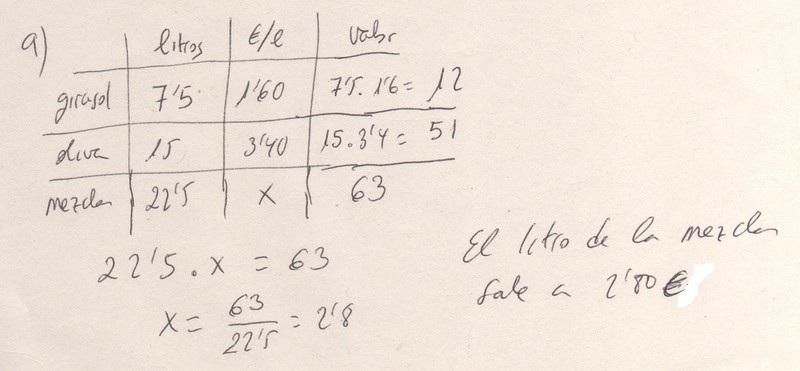 a)
litros €/l valor
girasol 7'5 1'60 7'5 · 1'6 = 12
oliva 15 3'40 15 · 3'4 = 51
mezcla 22'5 x 63
22'5 · x = 63
x = 63/22'5 = 2'8
El litro de la mezcla
sale a 2'80 €